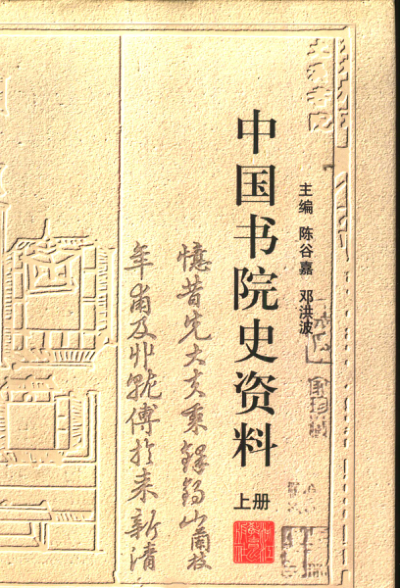 中国书院史资料
主编 陈谷嘉 邓洪波
上册
憶昔先大夫秉鐸錫山蘭枝
年甫及丱就傅於来新清